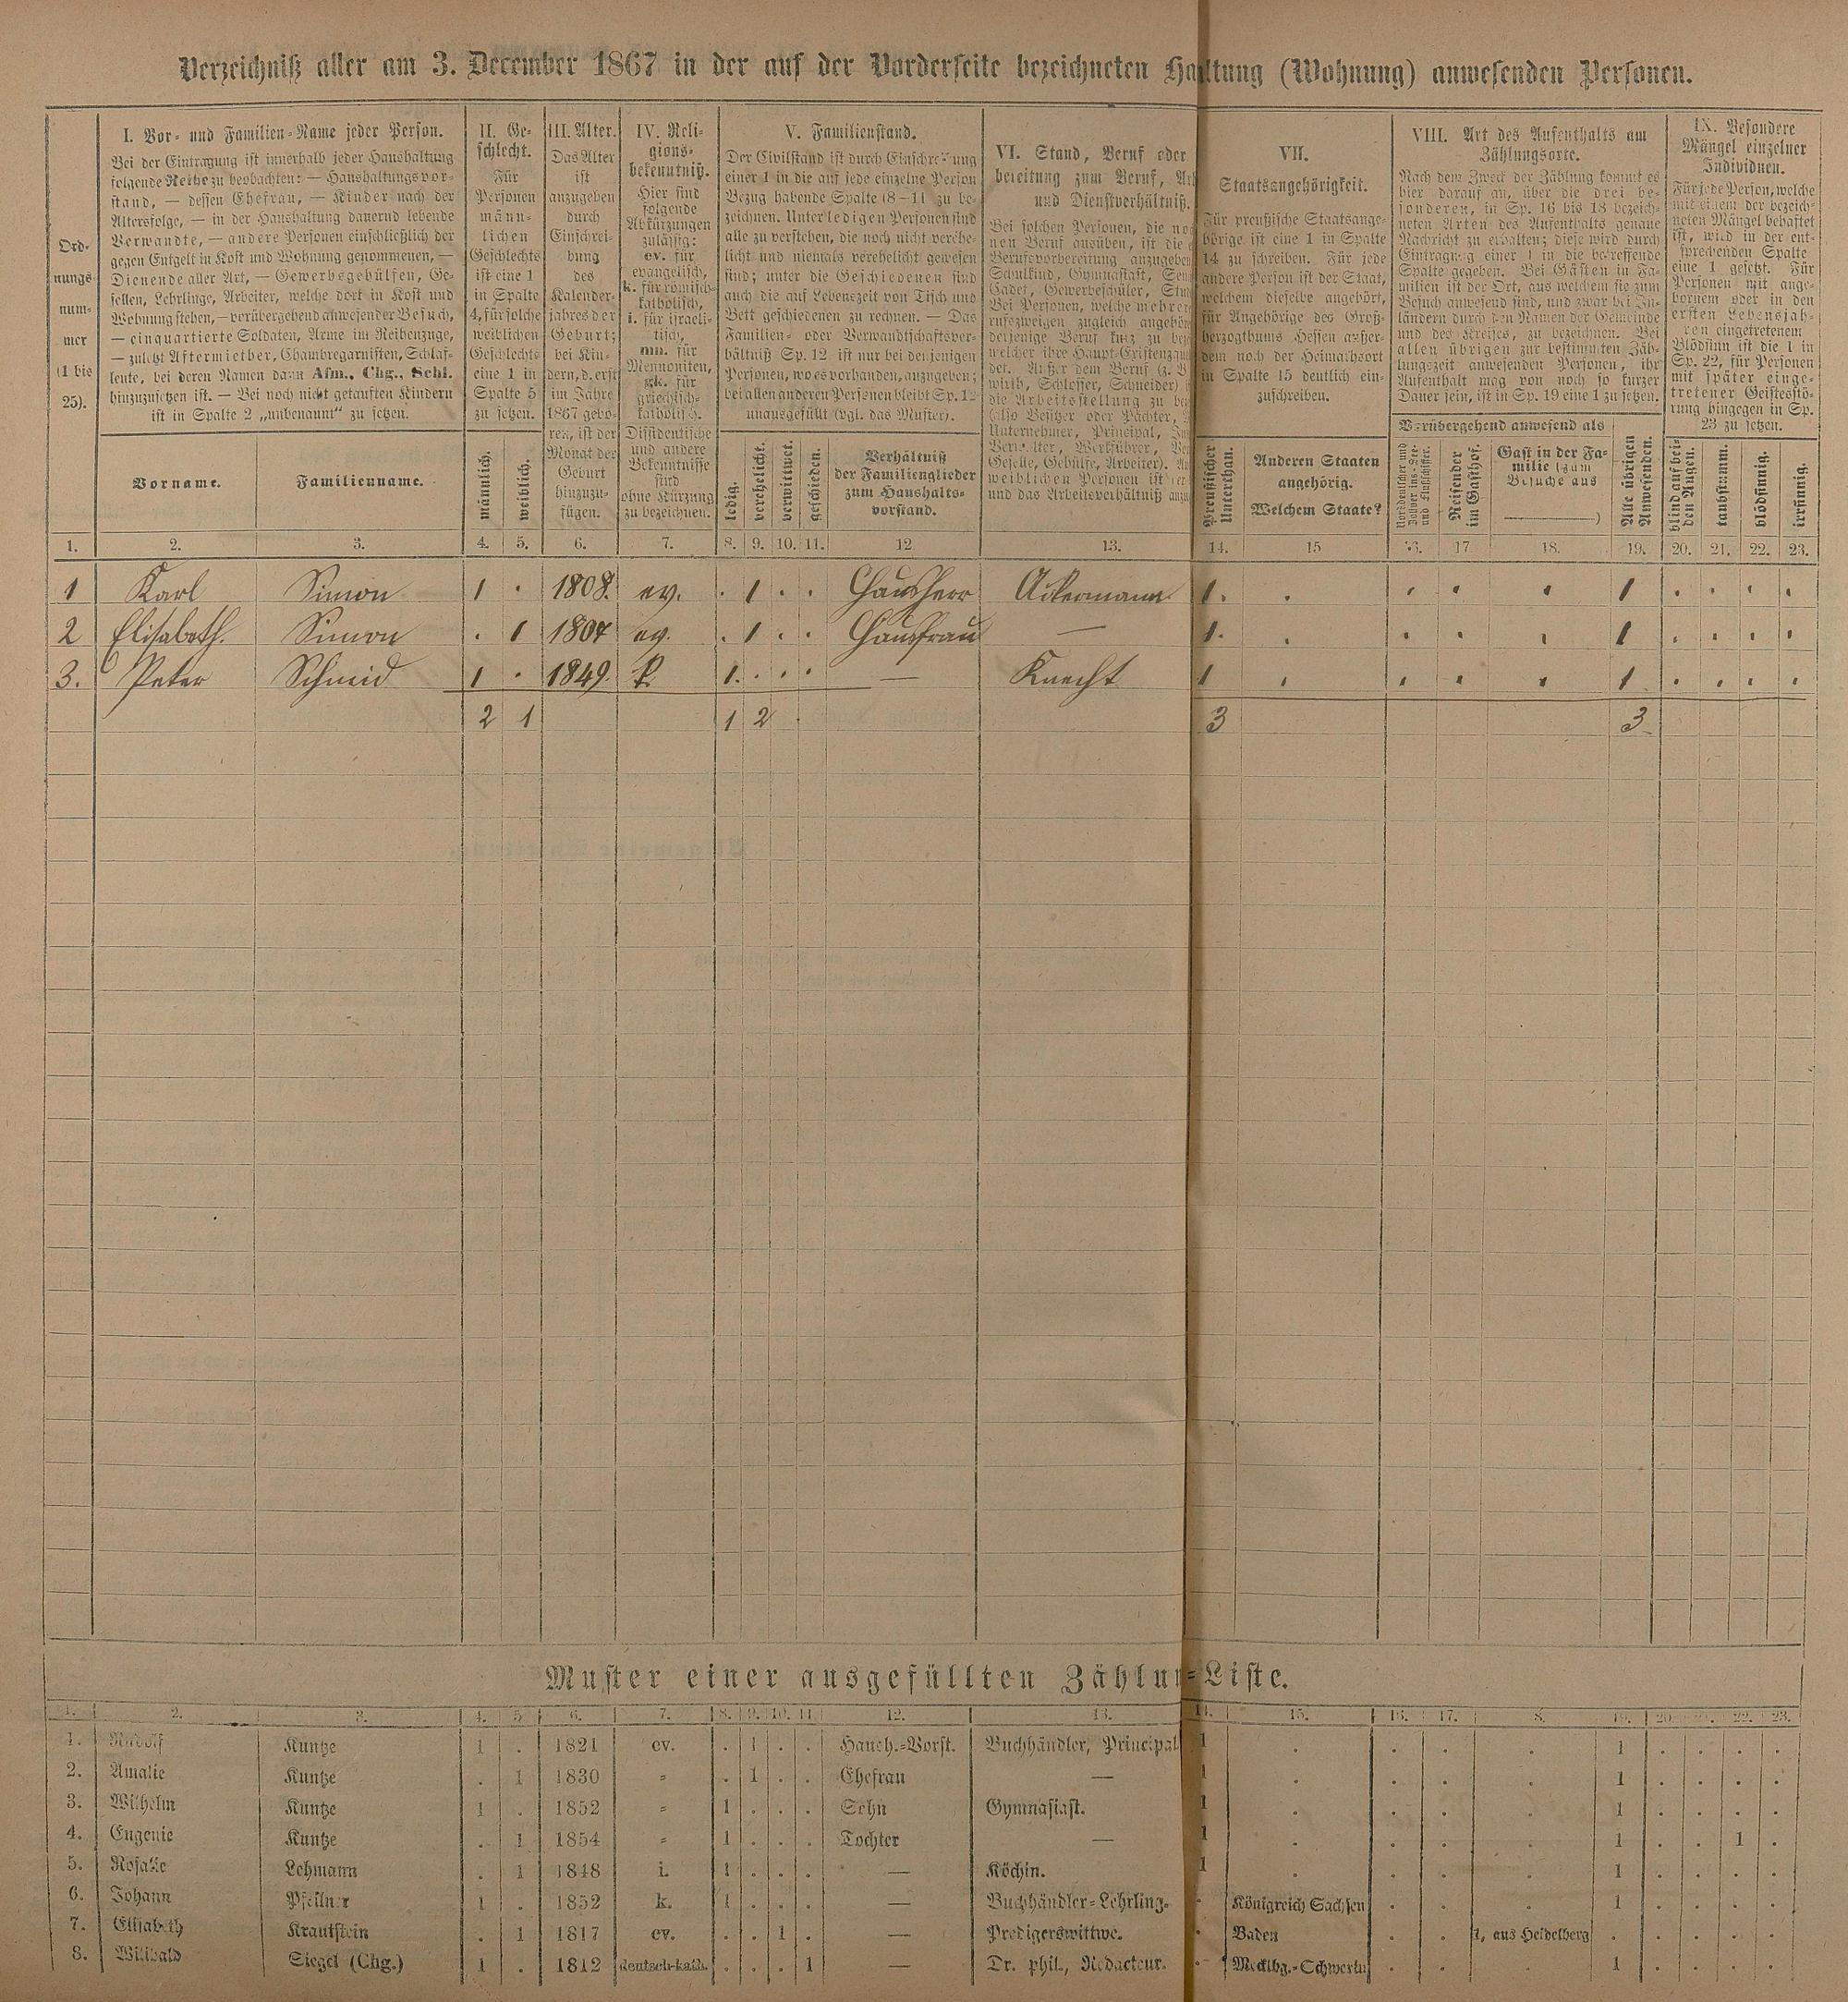 Verzeichniß aller am 3. December 1867 in der auf der Vorderseite bezeichneten Haltung (Wohnung) anwesenden Personen.
Ord-
nungs-
num-
mer
(1 bis
25).
I. Vor- und Familien-Name jeder Person.
Bei der Eintragung ist innerhalb jeder Haushaltung
folgende Reihe zu beobachten: — Haushaltungsvor-
stand, — dessen Ehefrau, — Kinder nach der
Altersfolge, — in der Haushaltung dauernd lebende
Verwandte, — andere Personen einschließlich der
gegen Entgelt in Kost und Wohnung genommenen, —
Dienende aller Art, — Gewerbsgehülfen, Ge-
sellen, Lehrlinge, Arbeiter, welche dort in Kost und
Wohnung stehen, — vorübergehend anwesender Besuch,
— einquartierte Soldaten, Arme im Reihenzuge,
— zuletzt Aftermiether, Chambregarnisten, Schlaf-
leute, bei deren Namen dann Afm., Chg., Schl.
hinzuzusetzen ist. — Bei noch nicht getauften Kindern
ist in Spalte 2 „unbenannt“ zu setzen.
Vorname.
Familienname.
II. Ge-
schlecht.
Für
Personen
männ-
lichen
Geschlechts
ist eine 1
in Spalte
4, für solche
weiblichen
Geschlechts
eine 1 in
Spalte 5
zu setzen.
männlich.
weiblich.
III. Alter.
Das Alter
ist
anzugeben
durch
Einschrei-
bung
des
Kalender-
jahres der
Geburt;
bei Kin-
dern, d. erst
im Jahre
1867 gebo-
ren, ist der
Monat der
Geburt
hinzuzu-
fügen.
IV. Reli-
gions-
bekenntniß.
Hier sind
folgende
Abkürzungen
zulässig:
ev. für
evangelisch,
k. für römisch-
katholisch,
i. für israeli-
tisch,
mn. für
Mennoniten,
gk. für
griechisch-
katholisch.
Dissidentische
und andere
Bekenntnisse
sind
ohne Kürzung
zu bezeichnen.
V. Familienstand.
Der Civilstand ist durch Einschreibung
einer 1 in die auf jede einzelne Person
Bezug habende Spalte (8–11) zu be-
zeichnen. Unter ledigen Personen sind
alle zu verstehen, die noch nicht verehe-
licht und niemals verehelicht gewesen
sind; unter die Geschiedenen sind
auch die auf Lebenszeit von Tisch und
Bett geschiedenen zu rechnen. — Das
Familien- oder Verwandtschaftsver-
hältniß Sp. 12 ist nur bei denjenigen
Personen, wo es vorhanden, anzugeben;
bei allen anderen Personen bleibt Sp. 12
unausgefüllt (vgl. das Muster).
ledig.
verehelicht.
verwittwet.
geschieden.
Verhältniß
der Familienglieder
zum Haushalts-
vorstand.
VI. Stand, Beruf oder
bereitung zum Beruf, Ar
und Dienstverhältniß.
Bei solchen Personen, die no
nen Beruf ausüben, ist die
Berufsvorbereitung anzugeben
Schulkind, Gymnasiast, Sem
Cadet, Gewerbeschüler, Stu
Bei Personen, welche mehrere
rufszweigen zugleich angehören
derjenige Beruf kurz zu be
welcher ihre Haupt-Existenzqu
det. Außer dem Beruf (z. B.
wirth, Schlosser, Schneider)
die Arbeitsstellung zu be
(also Besitzer oder Pächter,
Unternehmer, Principal,
Verwalter, Werkführer,
Geselle, Gehülfe, Arbeiter).
weiblichen Personen ist
und das Arbeitsverhältniß anzu
VII.
Staatsangehörigkeit.
Für preußische Staatsange-
hörige ist eine 1 in Spalte
14 zu schreiben. Für jede
andere Person ist der Staat,
welchem dieselbe angehört,
für Angehörige des Groß-
herzogthums Hessen außer-
dem noch der Heimathsort
in Spalte 15 deutlich ein-
zuschreiben.
Preußischer
Unterthan.
Anderen Staaten
angehörig.
Welchem Staate?
VIII. Art des Aufenthalts am
Zählungsorte.
Nach dem Zweck der Zählung kommt es
hier darauf an, über die drei be-
sonderen, in Sp. 16 bis 18 bezeich-
neten Arten des Aufenthalts genaue
Nachricht zu erhalten; diese wird durch
Eintragung einer 1 in die betreffende
Spalte gegeben. Bei Gästen in Fa-
milien ist der Ort, aus welchem sie zum
Besuch anwesend sind, und zwar bei In-
ländern durch den Namen der Gemeinde
und des Kreises, zu bezeichnen. Bei
allen übrigen zur bestimmten Zäh-
lungszeit anwesenden Personen, ihr
Aufenthalt mag von noch so kurzer
Dauer sein, ist in Sp. 19 eine 1 zu setzen.
Vorübergehend anwesend als
Reisender
im Gasthof.
Gast in der Fa-
milie (zum
Besuche aus
)
Alle übrigen
Anwesenden.
IX. Besondere
Mängel einzelner
Individuen.
Für jede Person, welche
mit einem der bezeich-
neten Mängel behaftet
ist, wird in der ent-
sprechenden Spalte
eine 1 gesetzt. Für
Personen mit ange-
bornem oder in den
ersten Lebensjah-
ren eingetretenem
Blödsinn ist die 1 in
Sp. 22, für Personen
mit später einge-
tretener Geistesstö-
rung hingegen in Sp.
23 zu setzen.
blind auf bei-
den Augen.
taubstumm.
blödsinnig.
irrsinnig.
1. 2. 3. 4. 5. 6. 7. 8. 9. 10. 11. 12 13. 14. 15 16. 17. 18. 19. 20. 21. 22. 23.
1 Karl Simon 1 . 1808. ev. . 1 . . Hausherr Ackermann 1. . . . . 1 . . . .
2 Elisabeth. Simon . 1 1807 ev. . 1 . . Hausfrau — 1. . . . . 1 . . . .
3. Peter Schmid 1 . 1849. k. 1. . . . — Knecht 1 . . . . 1 . . . .
2 1 1 2 . 3 3
Muster einer ausgefüllten Zählu-Liste.
1. 2. 3. 4. 5 6. 7. 8. 9. 10. 11. 12. 13. 14. 15. 16. 17. 8. 19. 20. 21. 22. 23.
1. Rudolf Kuntze 1 . 1821 ev. . 1 . . Haush.-Vorst. Buchhändler, Principal 1 . . . . 1 . . . .
2. Amalie Kuntze . 1 1830 „ . 1 . . Ehefrau — 1 . . . . 1 . . . .
3. Wilhelm Kuntze 1 . 1852 „ 1 . . . Sohn Gymnasiast. 1 . . . . 1 . . . .
4. Eugenie Kuntze . 1 1854 „ 1 . . . Tochter — 1 . . . . 1 . . 1 .
5. Rosalie Lehmann . 1 1848 i. 1 . . . — Köchin. 1 . . . . 1 . . . .
6. Johann Pfeilner 1 . 1852 k. 1 . . . — Buchhändler-Lehrling. . Königreich Sachsen . . . 1 . . . .
7. Elisabeth Krautstein . 1 1817 ev. . . 1 . — Predigerswittwe. . Baden . . 1, aus Heidelberg . . . . .
8. Willibald Siegel (Chg.) 1 . 1812 deutsch-kath. . . . 1 — Dr. phil., Redacteur. . Mecklbg.-Schwerin . . . 1 . . . .